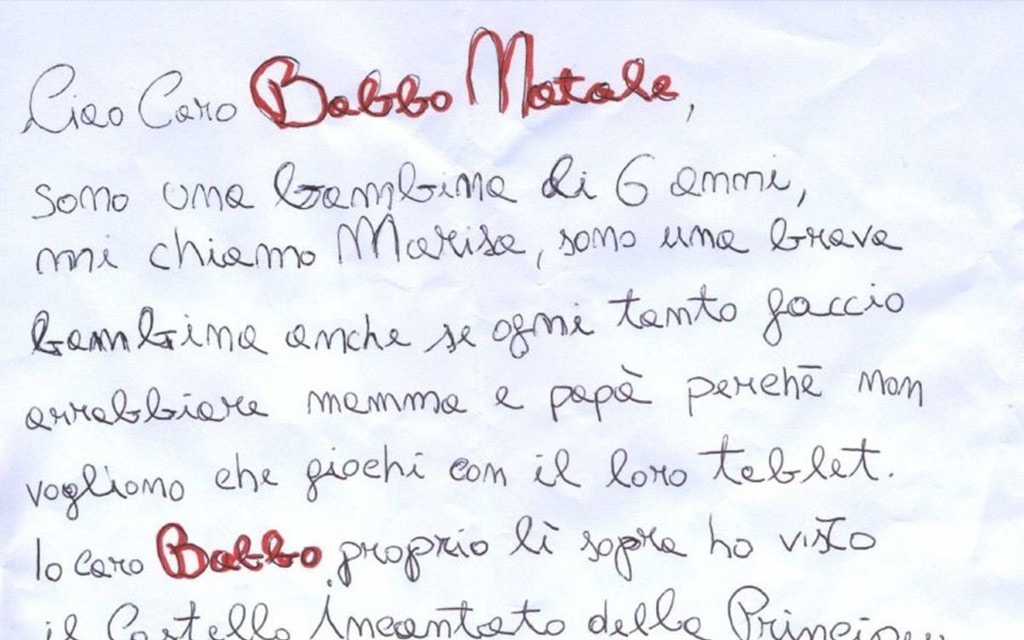 Ciao Caro Babbo Natale,
sono una bambina di 6 anni,
mi chiamo Marisa, sono una brava
bambina anche se ogni tanto faccio
arrabbiare mamma e papà perchè non
vogliono che giochi con il loro tablet.
Io caro Babbo, proprio lì sopra ho visto
il Castello Incantato della